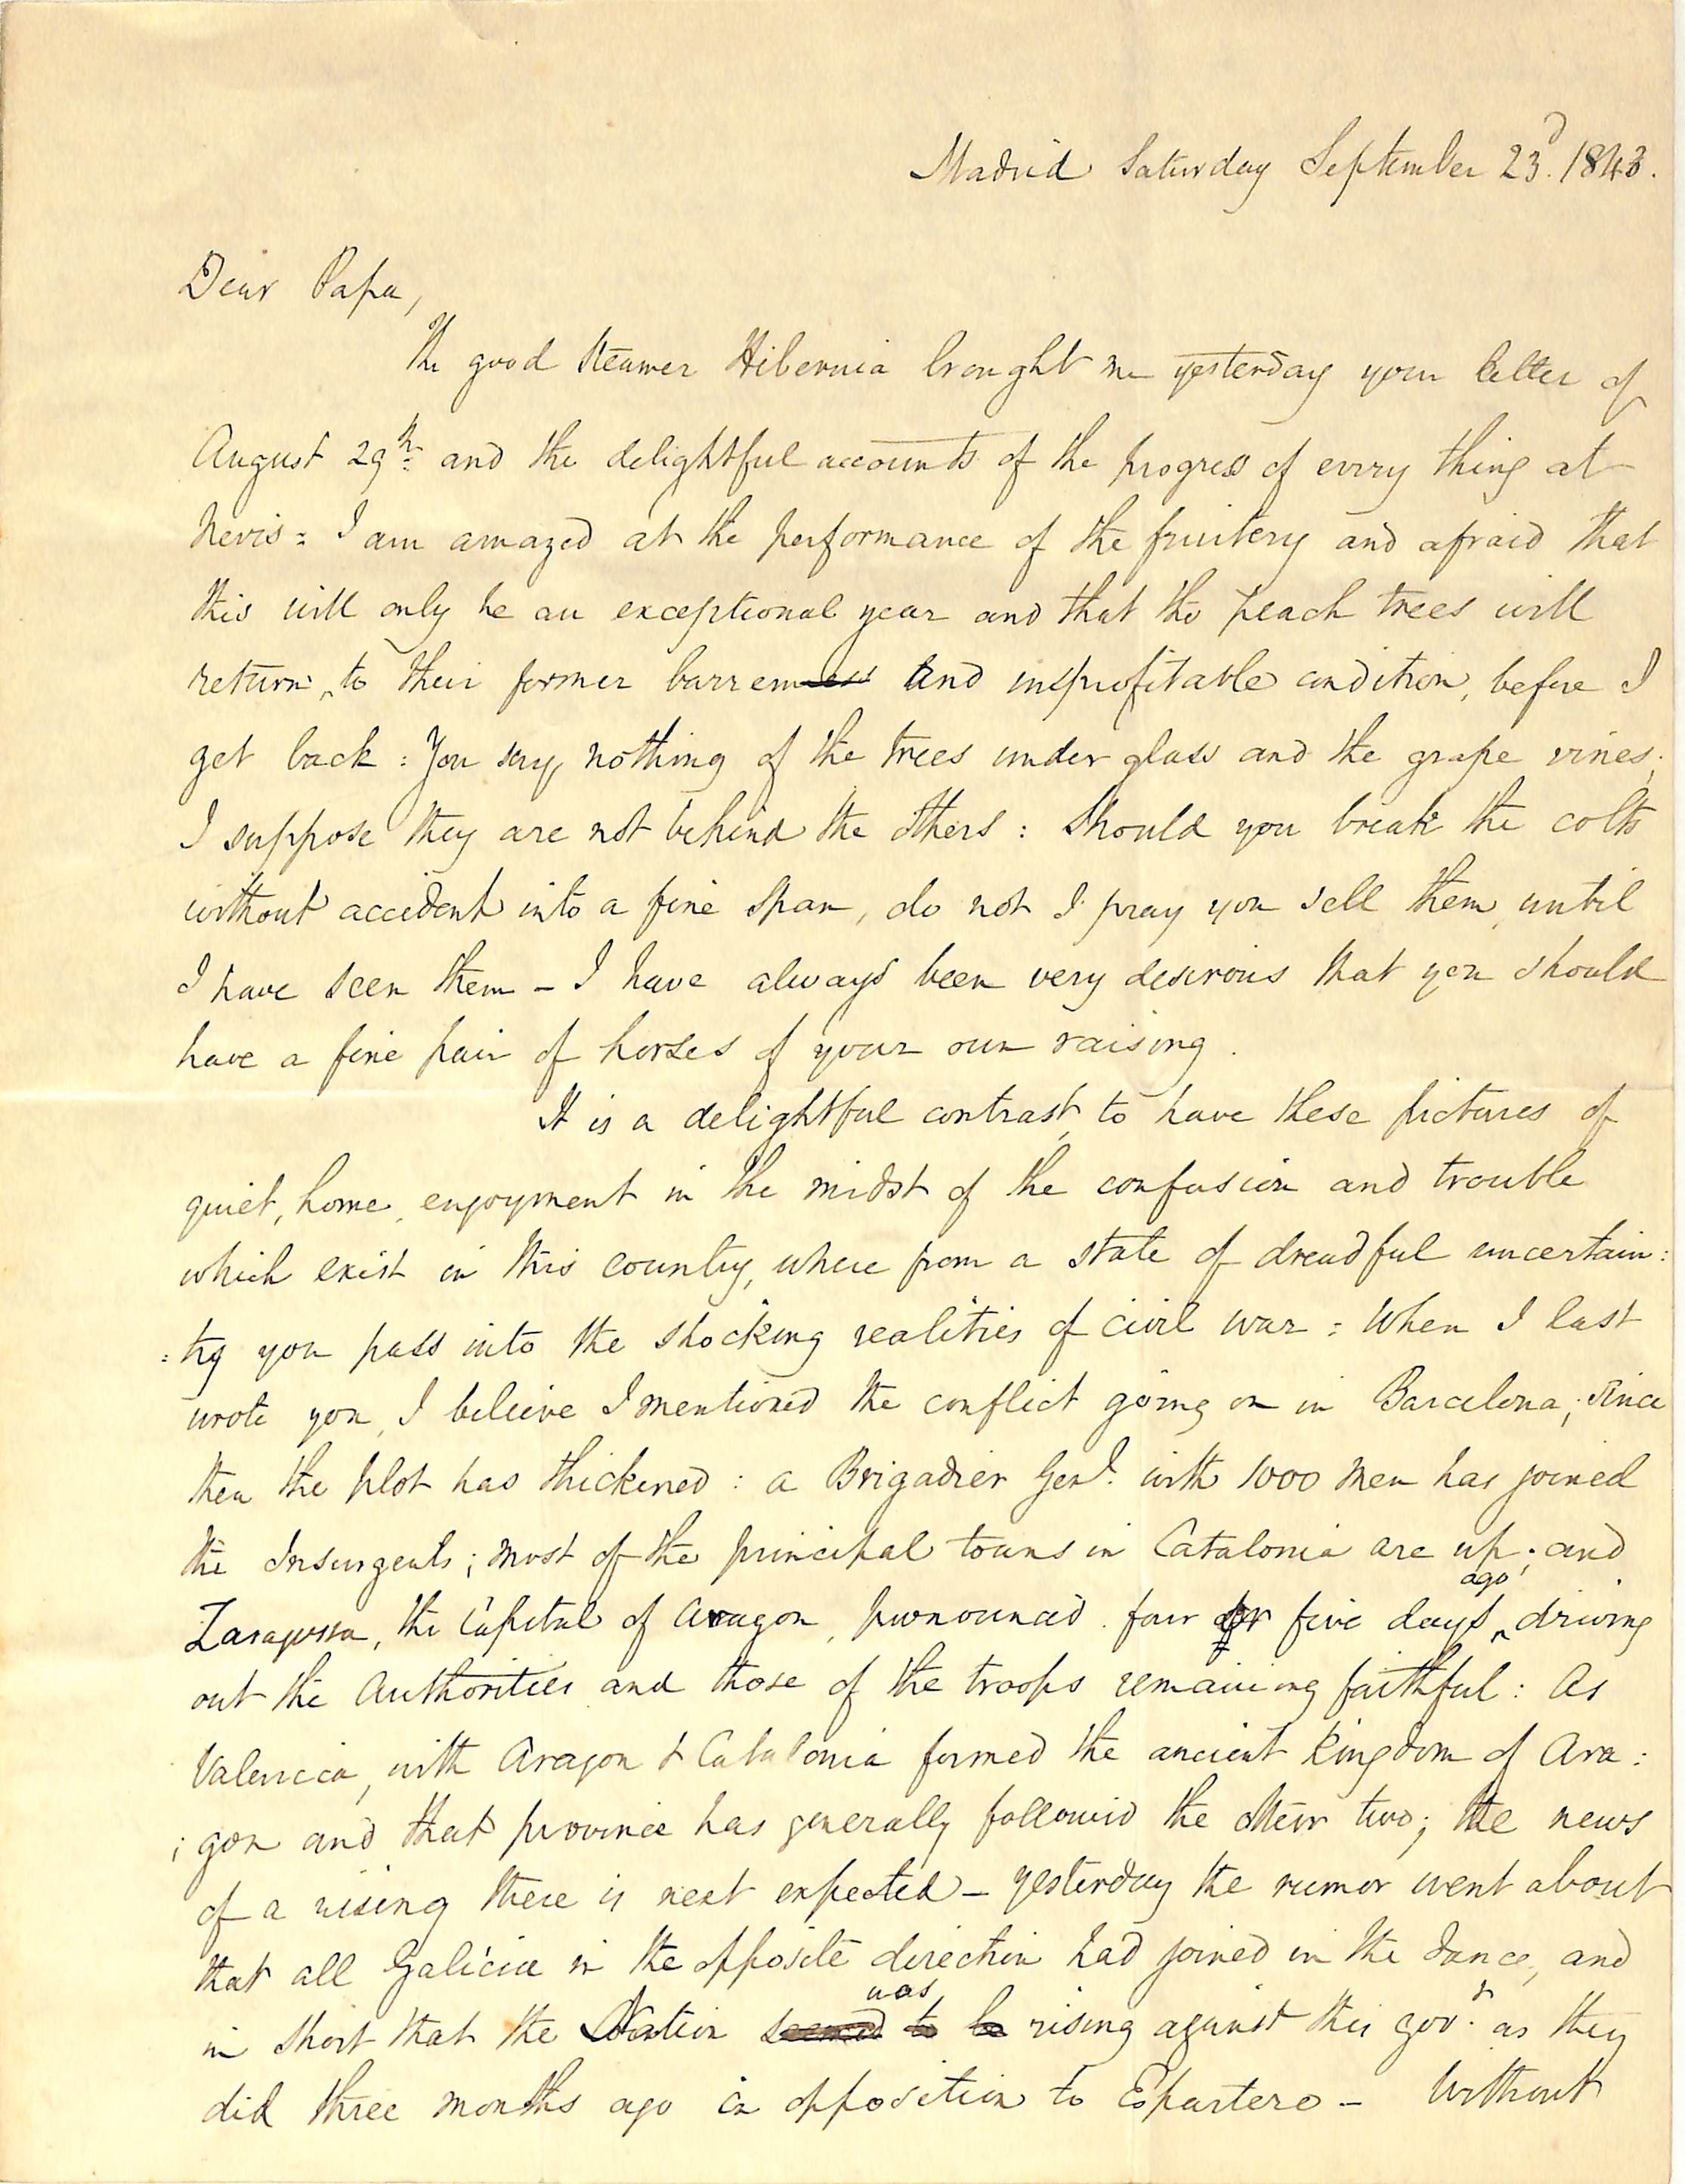 Madrid Saturday September 23d. 1843.
Dear Papa,
The good Steamer Hibernia brought me yesterday your letter of
August 29th and the delightful accounts of the progress of every thing at
Nevis = I am amazed at the performance of the fruitery and afraid that
this will only be an exceptional year and that the peach trees will
return, to their former barrenness and unprofitable condition, before I
get back : You say nothing of the trees under glass and the grape vines;
I suppose they are not behind the others : Should you break the colts
without accident into a fine span, do not I pray you sell them, until
I have seen them – I have always been very desirous that you should
have a fine pair of horses of your own raising.
It is a delightful contrast, to have these pictures of
quiet, home, enjoyment in the midst of the confusion and trouble
which exist in this country, where from a state of dreadful uncertain:
:ty you pass into the shocking realities of civil war = When I last
wrote you, I believe I mentioned the conflict going on in Barcelona; since
then the plot has thickened : a Brigadier Genl. with 1000 men has joined
the Insurgents; most of the principal towns in Catalonia are up; and
Zaragossa, the Capital of Aragon, pronounced four or five days ago, driving
out the Authorities and those of the troops remaining faithful : As
Valencia, with Aragon & Catalonia formed the ancient Kingdom of Ara:
:gon and that province has generally followed the other two; the news
of a rising there is next expected – yesterday the rumor went about
that all Galicia in the opposite direction had joined in the dance, and
in short that the Nation seemed to be was rising against this govt. as they
did three months ago in opposition to Espartero – Without